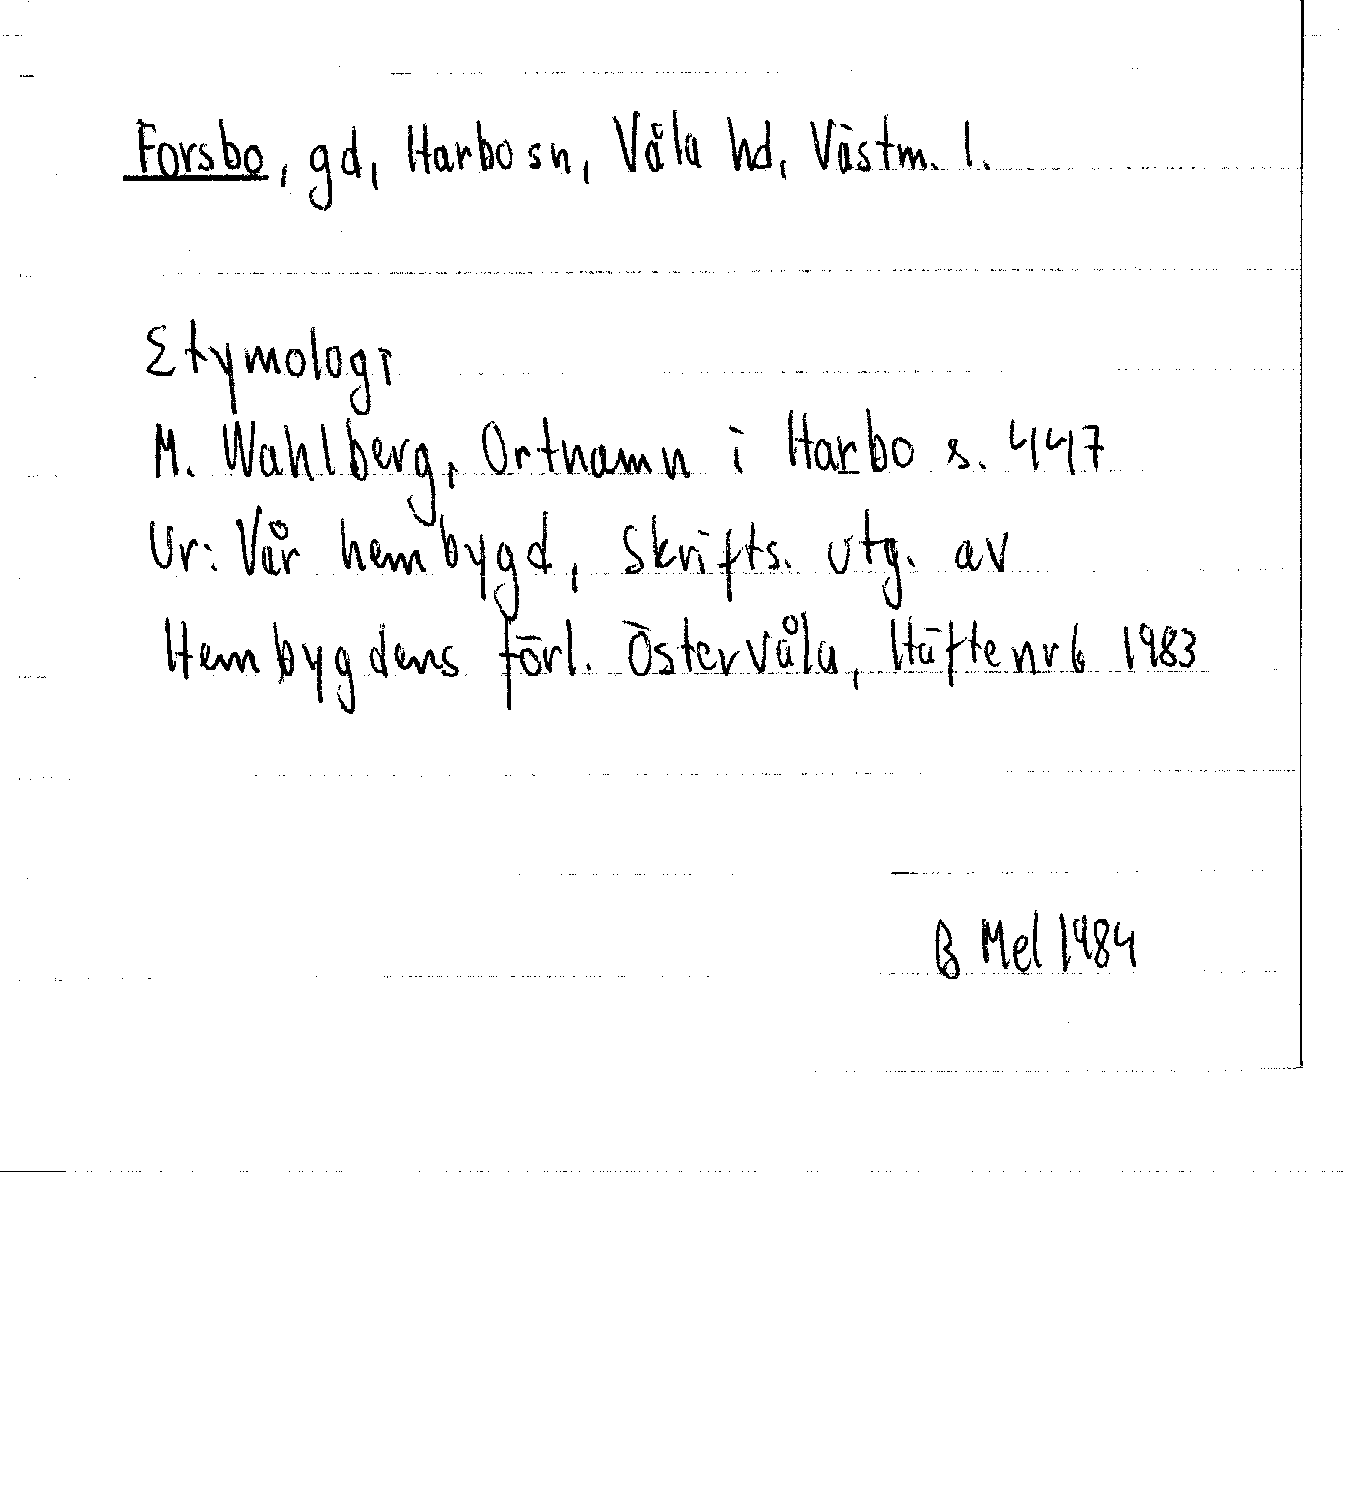 Forsbo, gd, Harbo sn, Våla hd, Västm. l.
Etymologi
M. Wahlberg, Ortnamn i Harbo s. 447
Ur: Vår hembygd, Skrifts. utg. av
Hembygdens förl. Östervåla, Häfte nr 6 1983
B Mel 1984